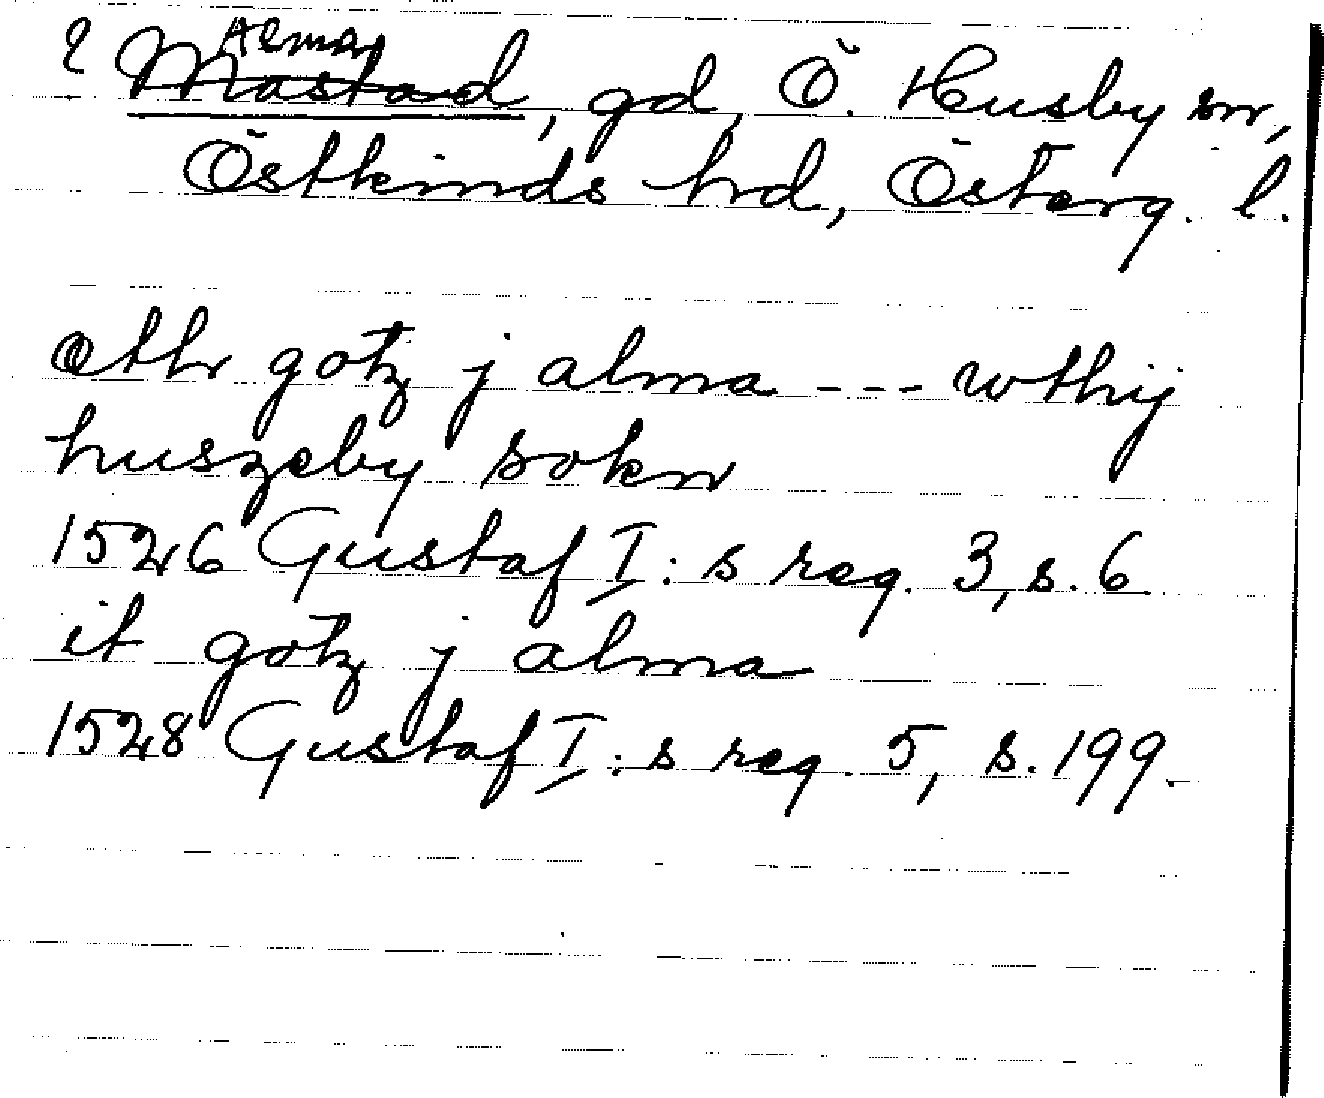 ? Alma
Mastad, gd, Ö. Husby sn,
Östkinds hrd, Österg. l.
atth gotz j alma --- wthij
huszeby sokn
1526 Gustaf I:s reg. 3, s. 6
it gotz j alma
1528 Gustaf I:s reg. 5, s. 199.